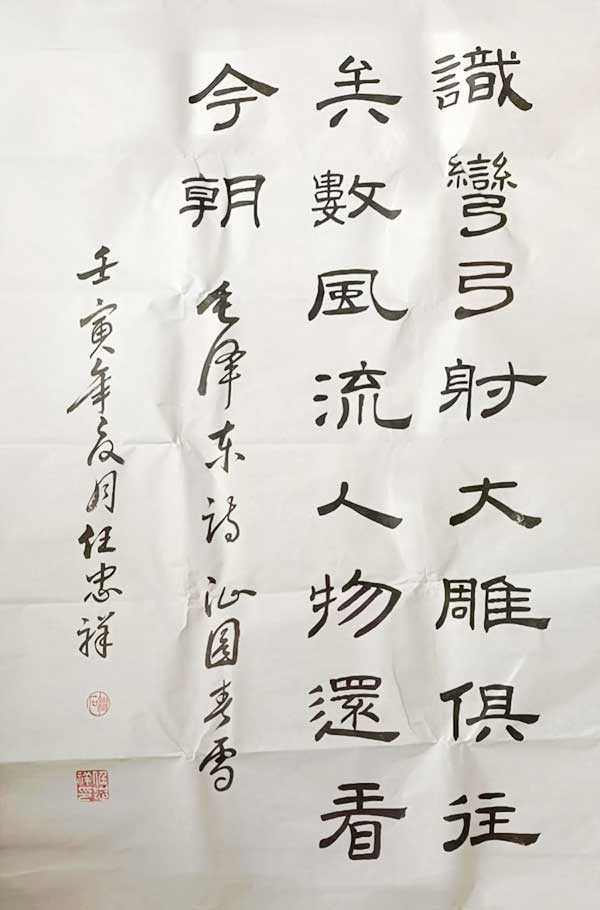 識彎弓射大雕俱往
矣數風流人物還看
今朝
毛泽东诗 沁园春雪
壬寅年夏月任忠祥